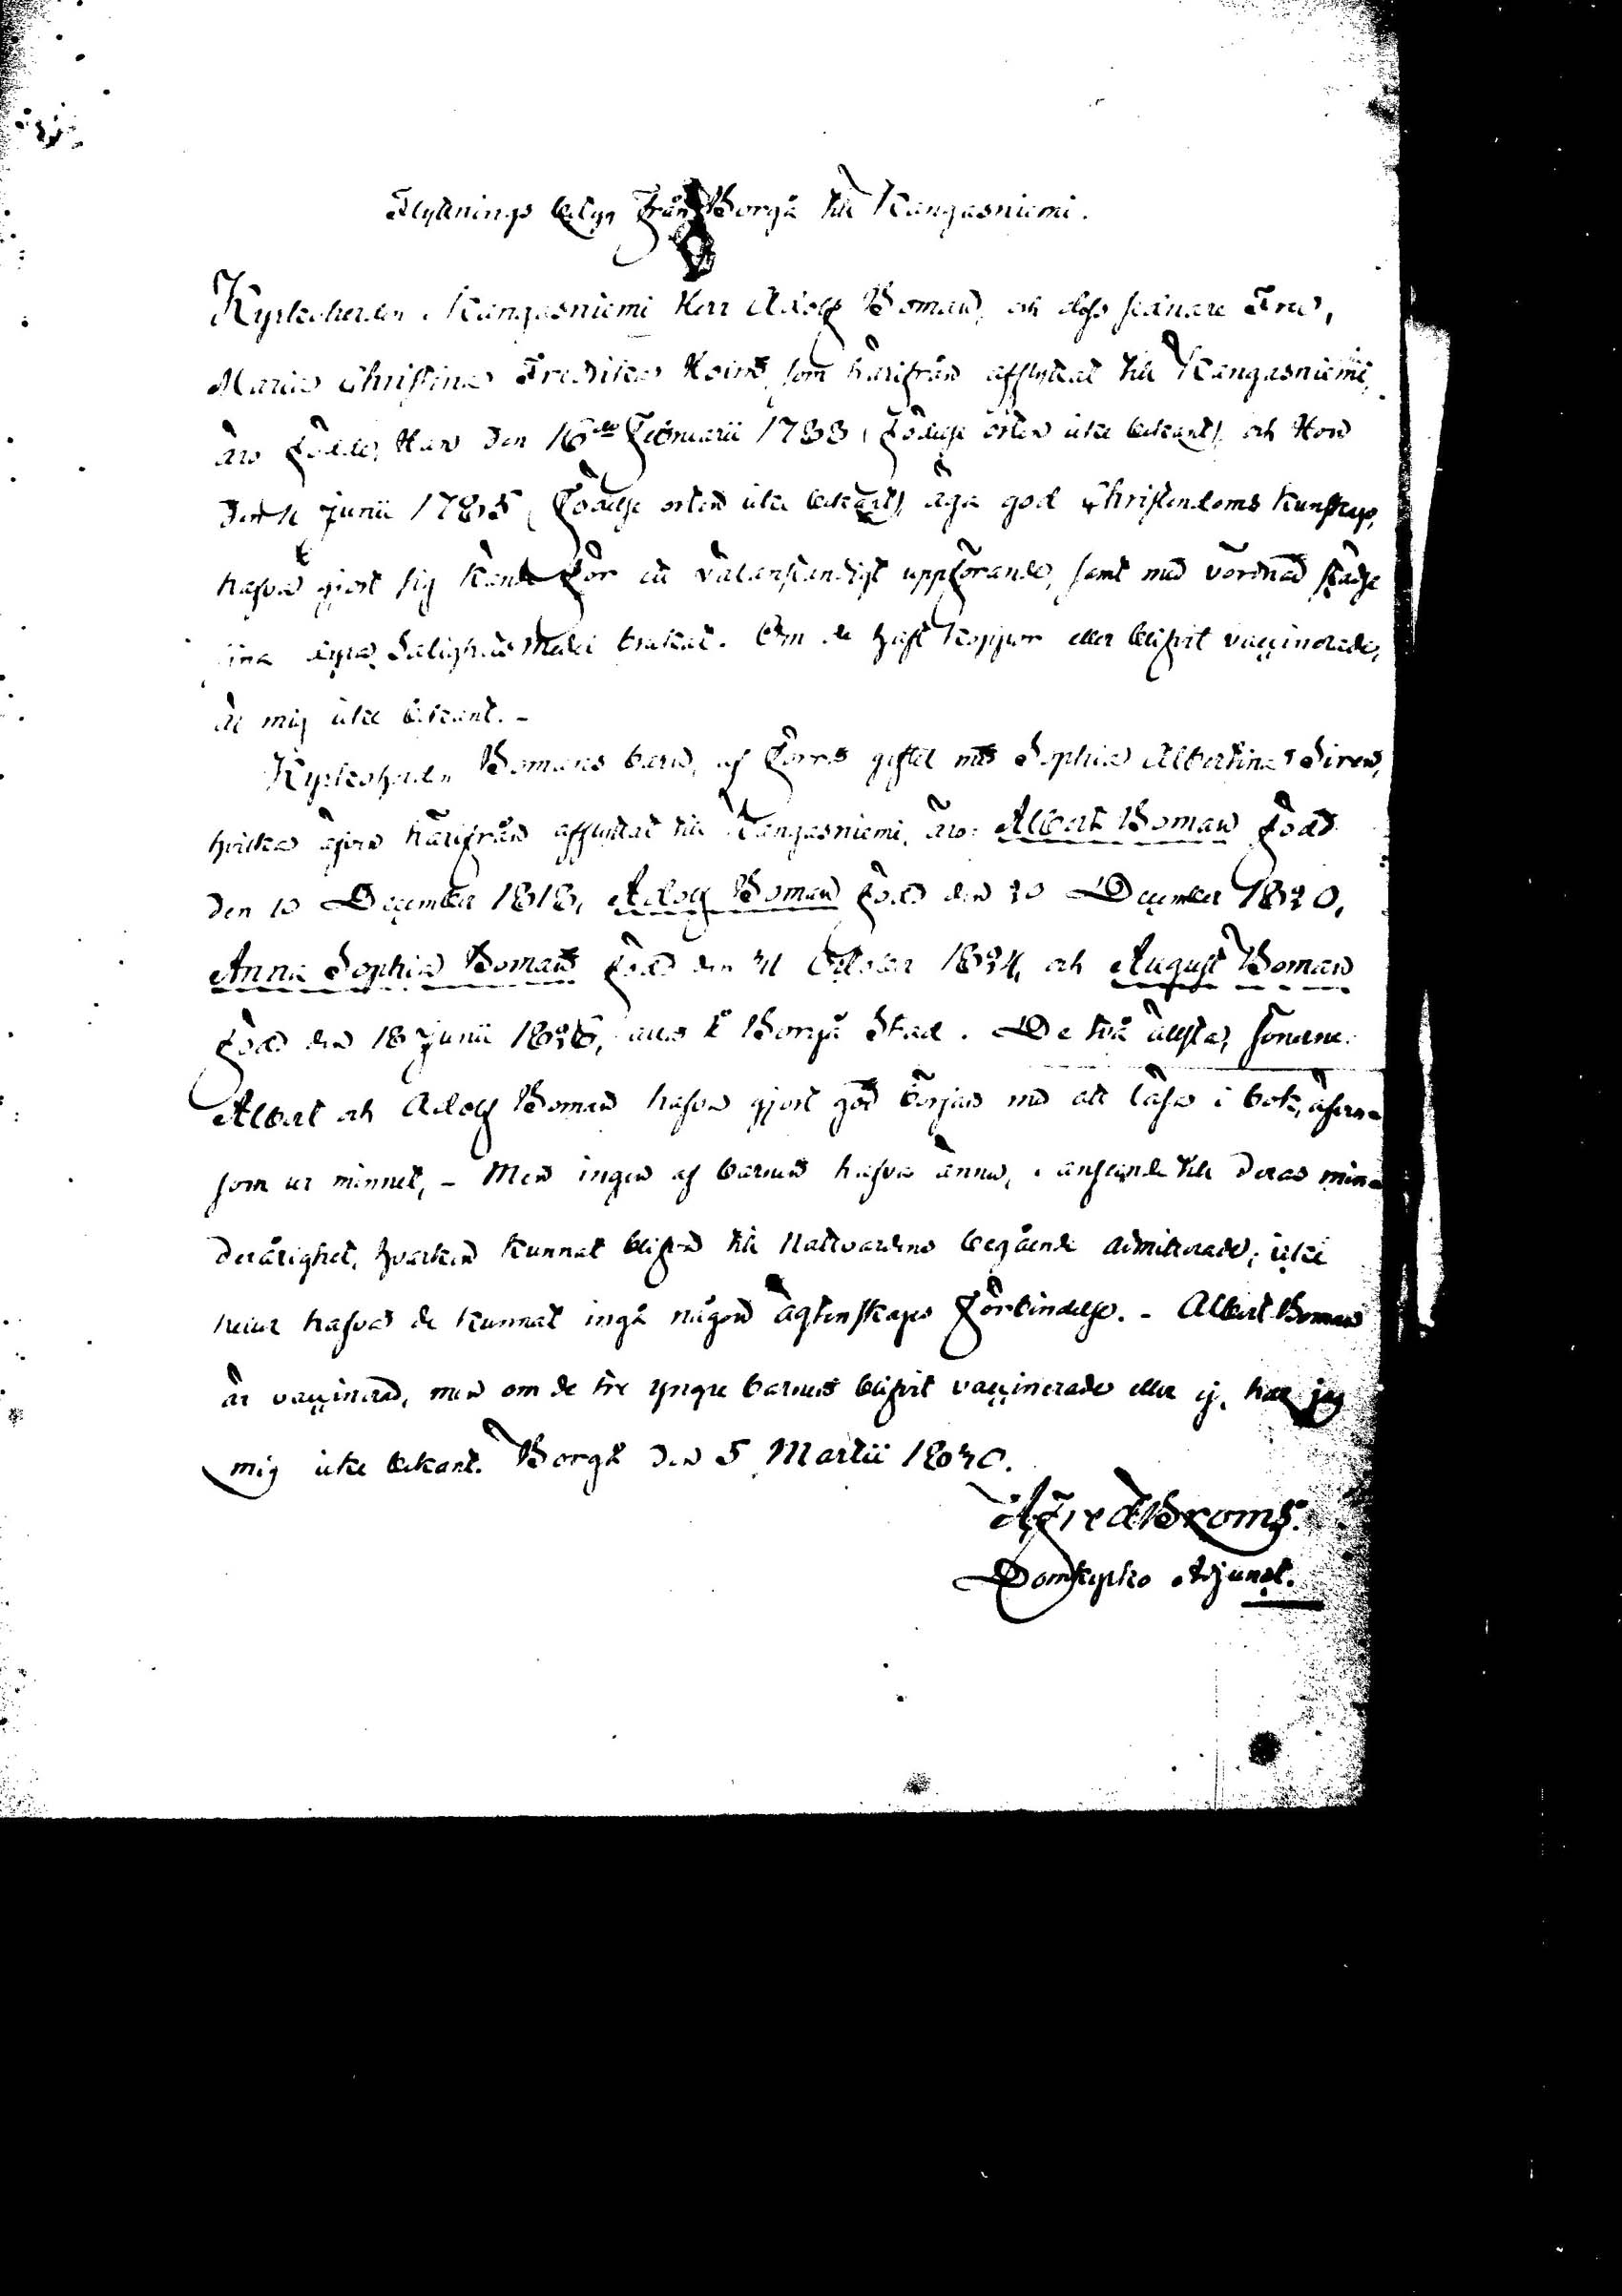 Flyttnings betyg Från Borgå till Kangasniemi.
Kyrkoherden i Kangasniemi Herr Adolf Boman, och dess sednare Fru,
Maria Christina Fredrika som härifrån afflyttat till Kangasniemi,
äro födde, Han den 16de Februarii 1788 (födelse orten icke bekant), och Hon
den Junii 1785 (födelse orten icke bekant), äga god Christendoms kunskap,
hafva gjort sig kände för ett välanständigt uppförande, samt med vördnad städse
sina dyra Salighets Medel brukat. Om de haft koppor eller blifvit vaccinerade,
är mig icke bekant. -
Kyrkoherden Bomans barn, af förra giftet med Sophia Albertina Siren,
hvilka äfven härifrån afflyttat till Kangasniemi, äro: Albert Boman född
den 10 December 1818, Adolf Boman född den 20 December 1820,
Anna Sophia Boman född den October 1824, och August Boman
född den 18 Junii 1826, alla i Borgå Stad. De två äldsta, sönerne
Albert och Adolf Boman hafva gjort god början med att läsa i bok, äfven-
som ur minnet, - Men ingen af barnen hafva ännu, i anseende till deras min-
derårighet, hvarken kunnat blifva till Nattvardens begående admitterade; icke
heller hafva de kunnat ingå någon ägtenskaps förbindelse. - Albert Boman
är vaccinerad, men om de tre yngre barnen blifvit vaccinerade eller ej, har jag
mig icke bekant. Borgå den 5 Martii 1830.
Alfred Broms.
Domkyrko Adjunct.